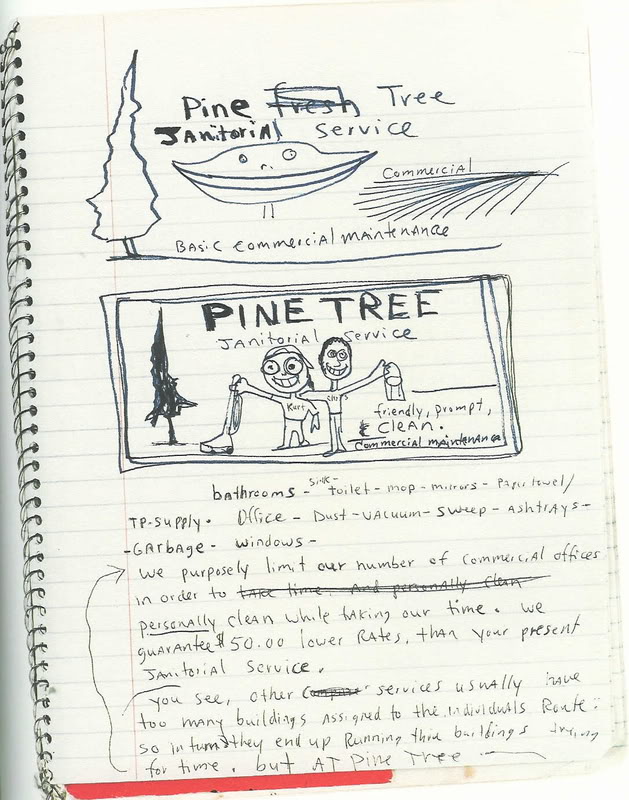 Pine Fresh Tree
Janitorial Service
Commercial
BASIC COMMERCIAL MAINTENANCE
PINE TREE
Janitorial Service
Kurt
Chris
friendly, prompt,
& CLEAN.
Commercial maintenance
bathrooms - sink - toilet - mop - mirrors - Paper towel/
TP-Supply. Office - Dust - VACUUM - SWEEP - ASHTRAYS -
- GARBAGE - windows -
We purposely limit our number of Commercial offices
in order to take time. And personally Clean
personally clean while taking our time. We
guarantee $50.00 lower Rates, than your present
Janitorial Service.
You see, other Company services usually have
too many buildings Assigned to the individuals Route:
so in turn they end up Running thru buildings
for time. but AT Pine Tree